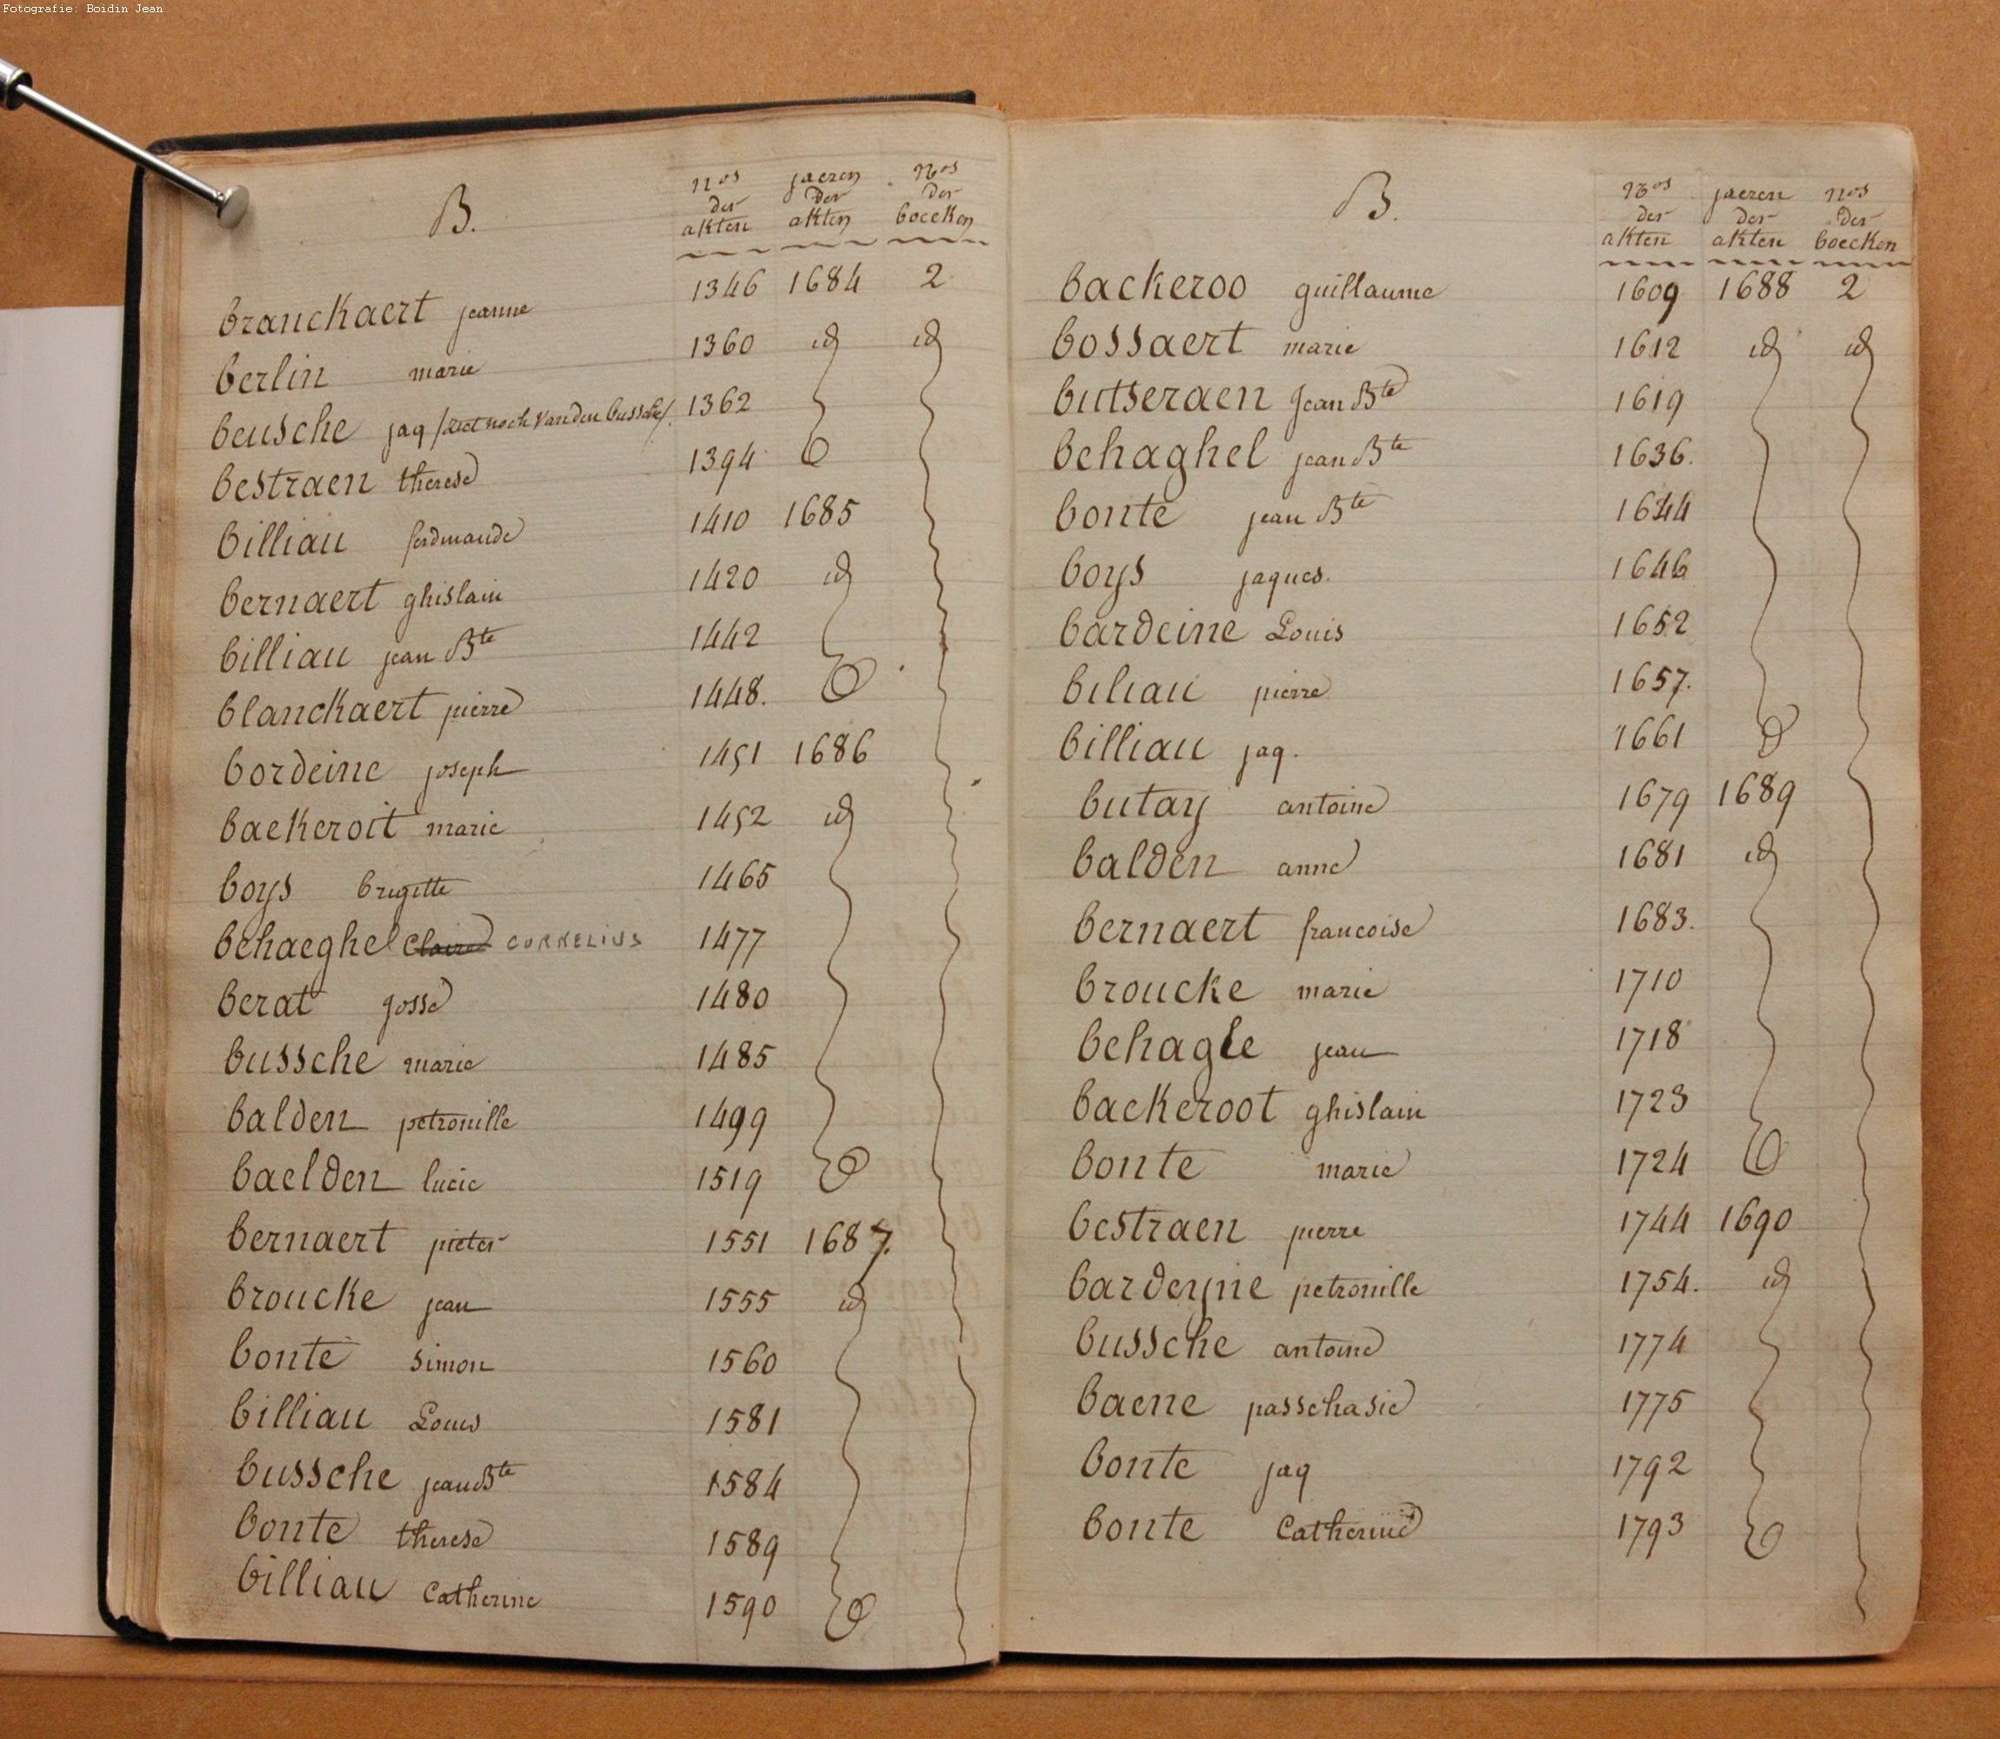 Fotografie: Boidin Jean
B.
nos der akten
jaeren der akten
Nos der boecken
branckaert jeanne 1346 1684 2
berlin marie 1360 id id
beusche jaq /ziet noch Vanden bussche/. 1362
bestraen therese 1394
billiau ferdinande 1410 1685
bernaert ghislain 1420 id
billiau jean Bte 1442
blanckaert pierre 1448.
bordeine joseph 1451 1686
baekeroit marie 1452 id
boys brigitte 1465
behaeghel claire CORNELIUS 1477
berat josse 1480
bussche marie 1485
balden petronille 1499
baelden lucie 1519
bernaert pieter 1551 1687.
broucke jean 1555 id
bonte simon 1560
billiau Louis 1581
bussche jean Bte 1584
bonte therese 1589
billiau Catherine 1590
B.
Nos der akten
jaeren der akten
nos der boecken
backeroo guillaume 1609 1688 2
bossaert marie 1612 id id
butseraen Jean Bte 1619
behaghel jean Bte 1636.
bonte jean Bte 1644
boys jaques. 1646
bardeine Louis 1652
biliau pierre 1657.
billiau jaq. 1661
butay antoine 1679 1689
balden anne 1681 id
bernaert francoise 1683.
broucke marie 1710
behagle jean 1718
backeroot ghislain 1723
bonte marie 1724
bestraen pierre 1744 1690
bardeyne petronille 1754. id
bussche antoine 1774
baene passchasie 1775
bonte jaq 1792
bonte Catherine 1793